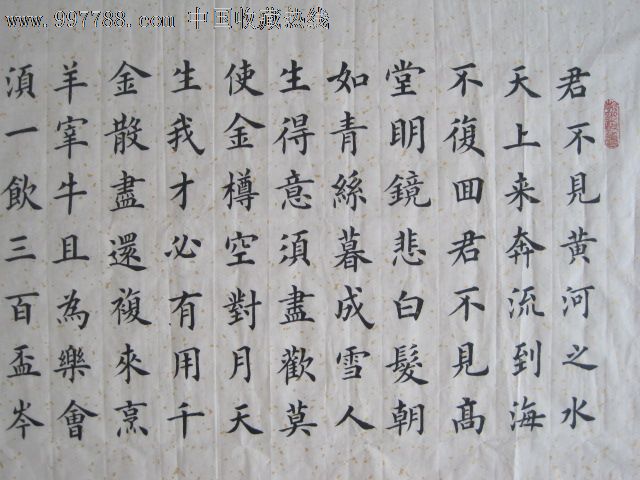 www.997788.com 中国收藏热线
君不見黄河之水
天上来奔流到海
不復回君不見高
堂明鏡悲白髮朝
如青絲暮成雪人
生得意須盡歡莫
使金樽空對月天
生我才必有用千
金散盡還複來烹
羊宰牛且為樂會
須一飲三百盃岑